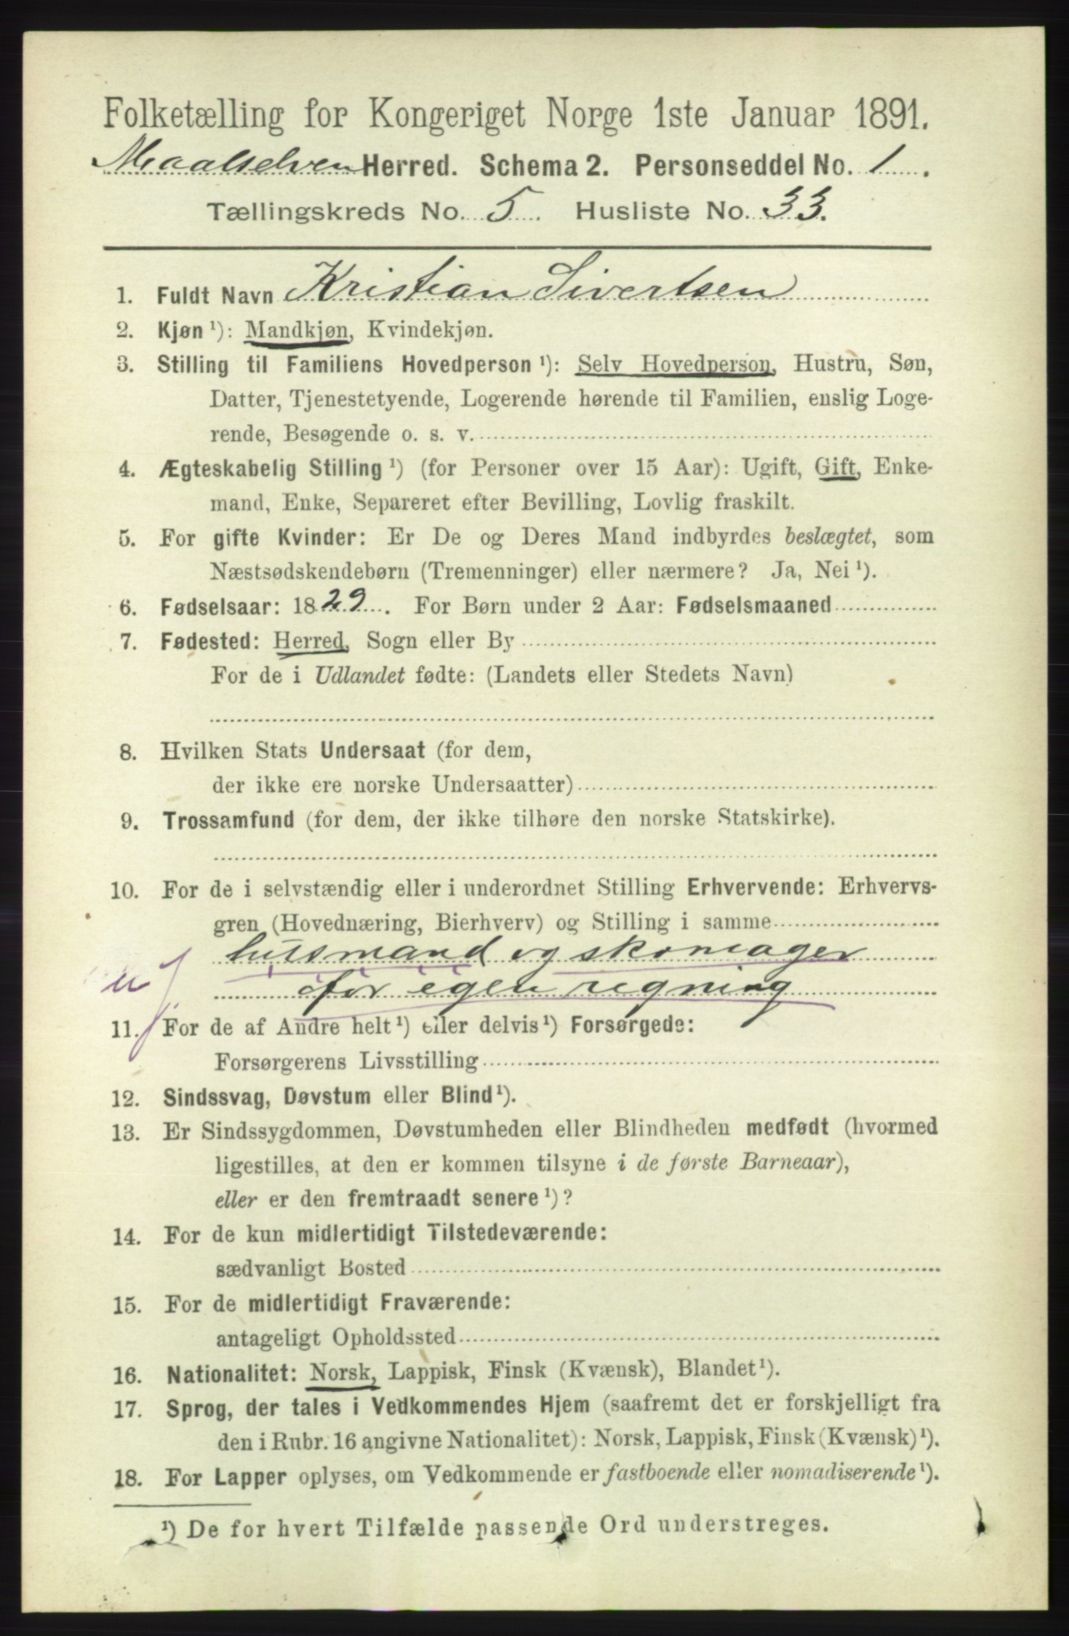 Folketælling for Kongeriget Norge 1ste Januar 1891.
Maalselven Herred. Schema 2. Personseddel No. 1.
Tællingskreds No. 5. Husliste No. 33.
1. Fuldt Navn Kristian Sivertsen
2. Kjøn ¹): Mandkjøn, Kvindekjøn.
3. Stilling til Familiens Hovedperson ¹): Selv Hovedperson, Hustru, Søn,
Datter, Tjenestetyende, Logerende hørende til Familien, enslig Loge-
rende, Besøgende o. s. v.
4. Ægteskabelig Stilling ¹) (for Personer over 15 Aar): Ugift, Gift, Enke-
mand, Enke, Separeret efter Bevilling, Lovlig fraskilt.
5. For gifte Kvinder: Er De og Deres Mand indbyrdes beslægtet, som
Næstsødskendebørn (Tremenninger) eller nærmere? Ja, Nei ¹).
6. Fødselsaar: 1829. For Børn under 2 Aar: Fødselsmaaned
7. Fødested: Herred, Sogn eller By
For de i Udlandet fødte: (Landets eller Stedets Navn)
8. Hvilken Stats Undersaat (for dem,
der ikke ere norske Undersaatter)
9. Trossamfund (for dem, der ikke tilhøre den norske Statskirke).
10. For de i selvstændig eller i underordnet Stilling Erhvervende: Erhvervs-
gren (Hovednæring, Bierhverv) og Stilling i samme
husmand og skomager
for egen regning
11. For de af Andre helt ¹) eller delvis ¹) Forsørgede:
Forsørgerens Livsstilling
12. Sindssvag, Døvstum eller Blind ¹).
13. Er Sindssygdommen, Døvstumheden eller Blindheden medfødt (hvormed
ligestilles, at den er kommen tilsyne i de første Barneaar),
eller er den fremtraadt senere ¹)?
14. For de kun midlertidigt Tilstedeværende:
sædvanligt Bosted
15. For de midlertidigt Fraværende:
antageligt Opholdssted
16. Nationalitet: Norsk, Lappisk, Finsk (Kvænsk), Blandet ¹).
17. Sprog, der tales i Vedkommendes Hjem (saafremt det er forskjelligt fra
den i Rubr. 16 angivne Nationalitet): Norsk, Lappisk, Finsk (Kvænsk) ¹).
18. For Lapper oplyses, om Vedkommende er fastboende eller nomadiserende ¹).
¹) De for hvert Tilfælde passende Ord understreges.